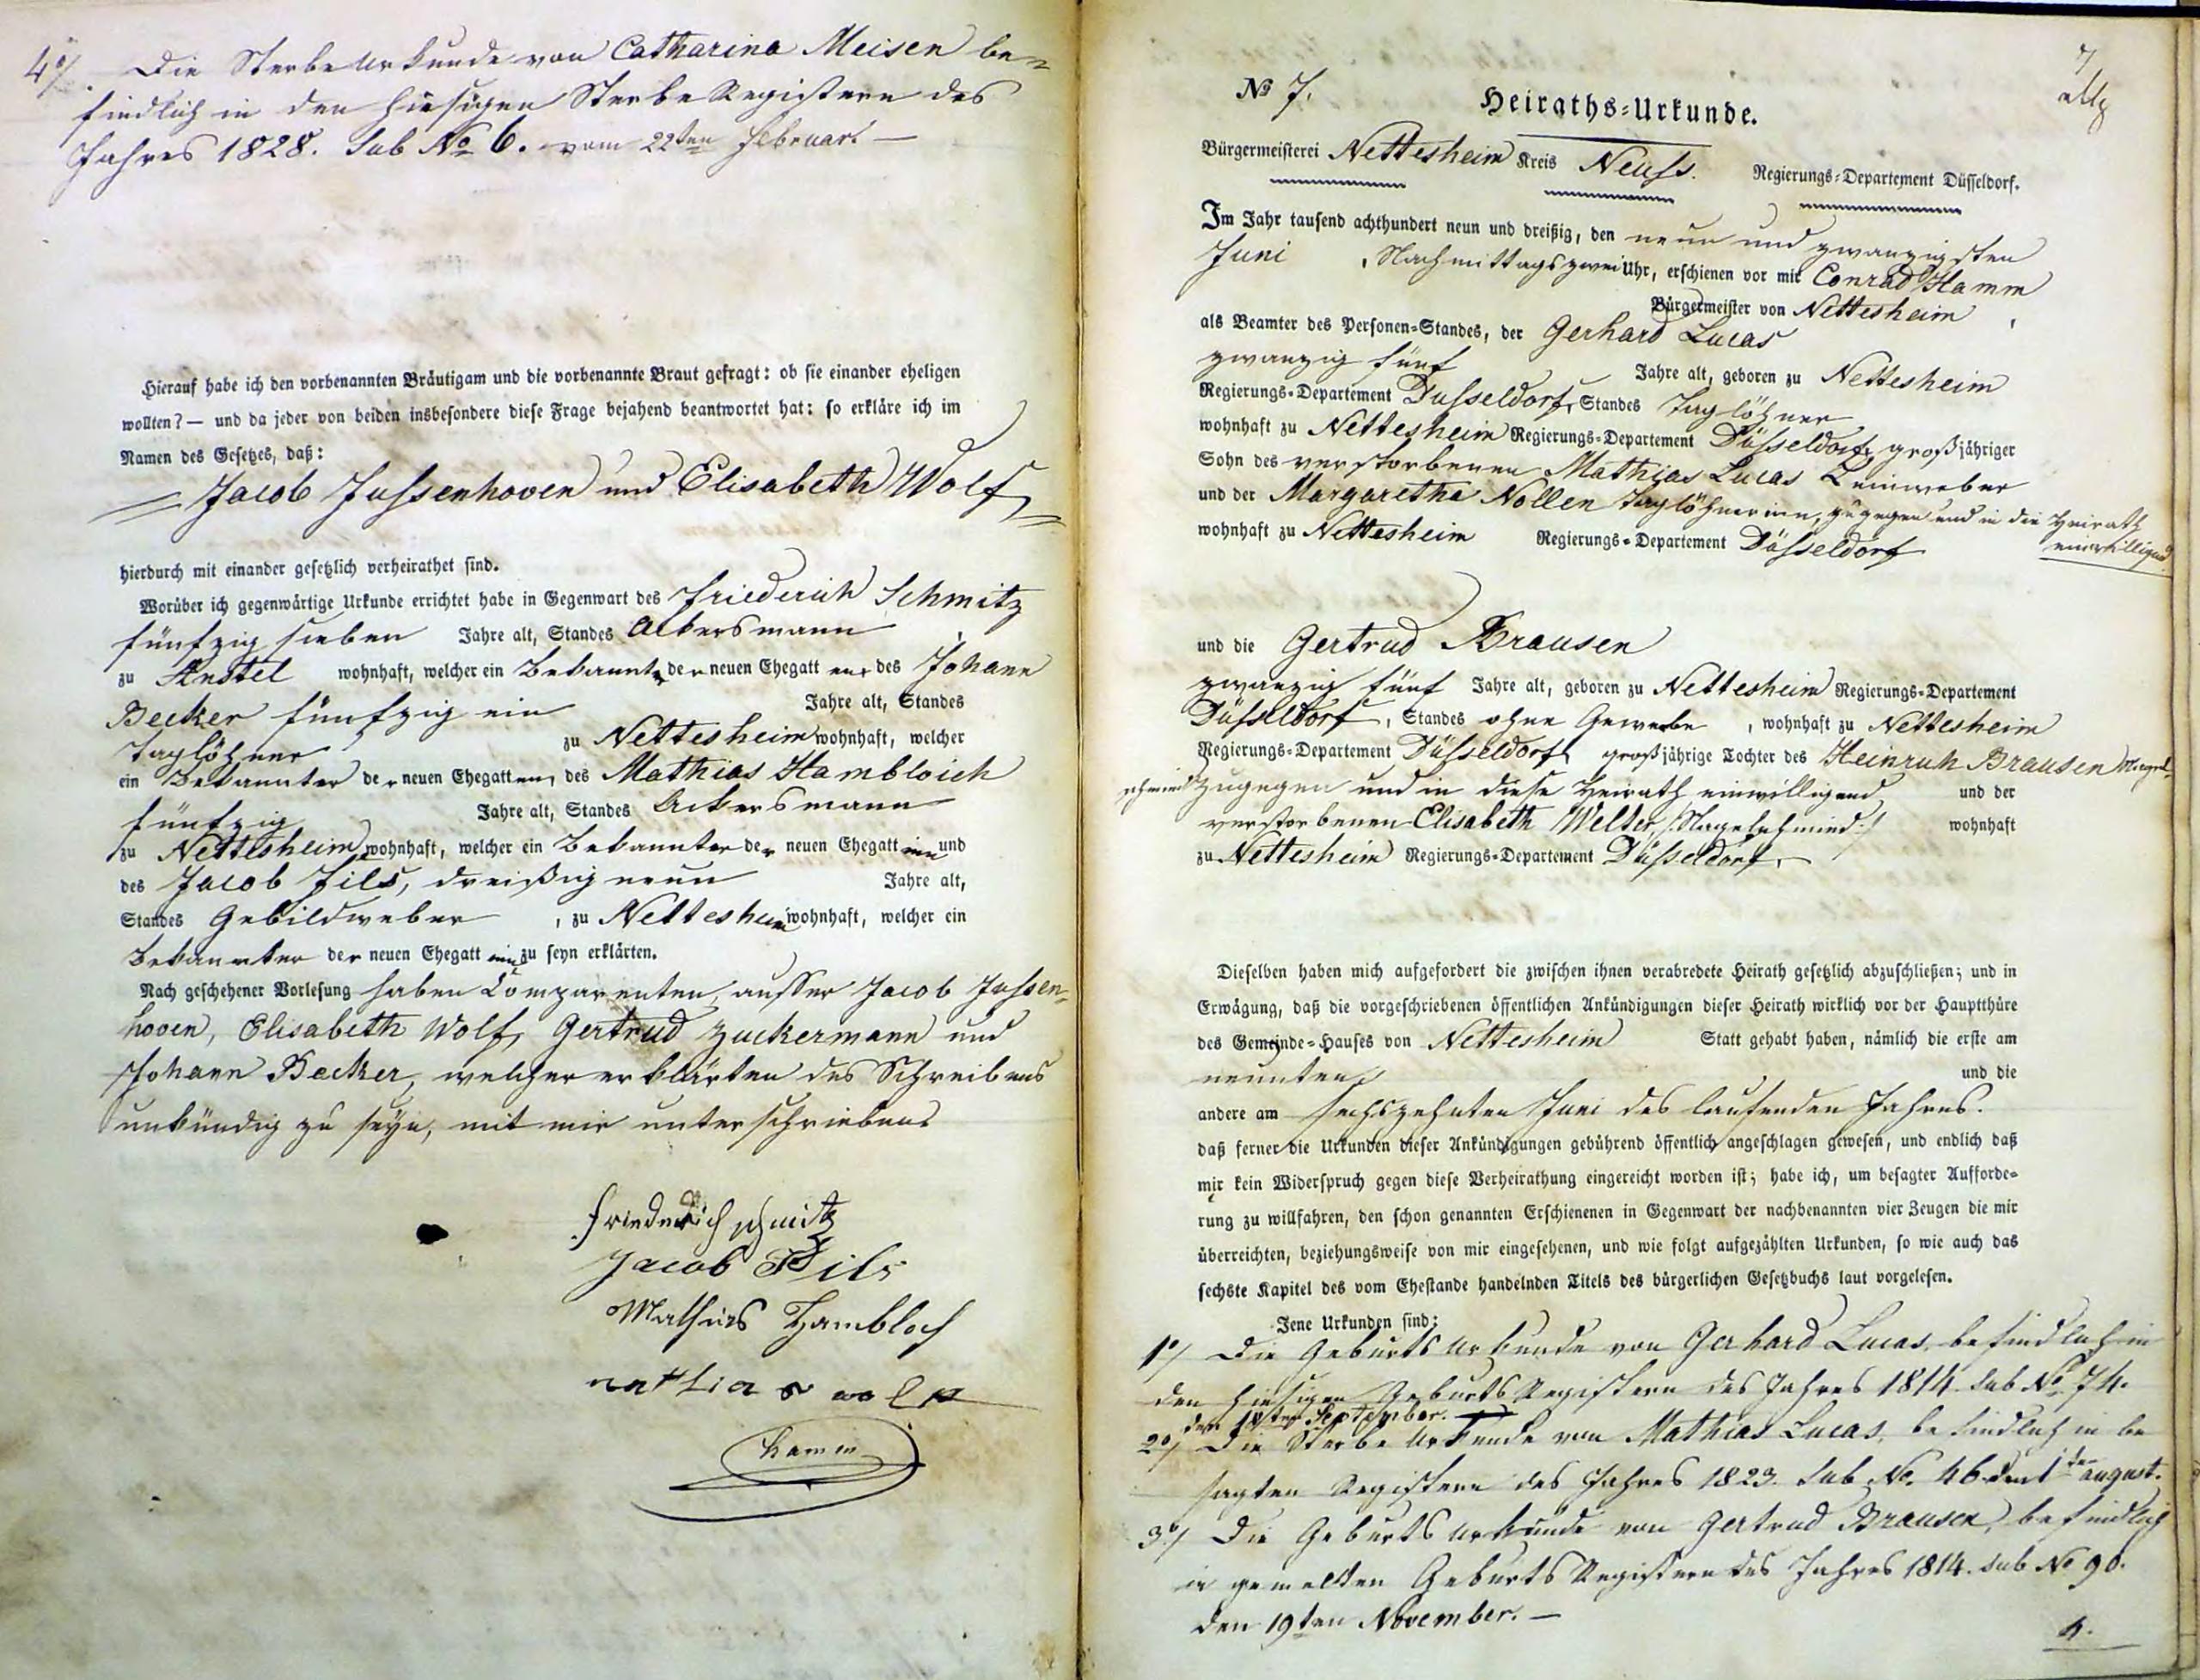 4º/ Die Sterbe Urkunde von Catharina Meisen be-
findlich in den hiesigen Sterbe Registern des
Jahres 1828. Sub No 6. vom 22ten Februar. —
Hierauf habe ich den vorbenannten Bräutigam und die vorbenannte Braut gefragt: ob sie einander ehelichen
wollten? — und da jeder von beiden insbesondere diese Frage bejahend beantwortet hat: so erkläre ich im
Namen des Gesetzes, daß:
Jacob Jussenhoven und Elisabeth Wolf
hierdurch mit einander gesetzlich verheirathet sind.
Worüber ich gegenwärtige Urkunde errichtet habe in Gegenwart des Friederich Schmitz
fünfzig sieben Jahre alt, Standes Ackersmann
zu Anstel wohnhaft, welcher ein Bekannter der neuen Ehegatten, des Johann
Becker fünfzig ein Jahre alt, Standes
Taglöhner zu Nettesheim wohnhaft, welcher
ein Bekannter der neuen Ehegatten, des Mathias Hambloich
fünfzig Jahre alt, Standes Ackersmann
zu Nettesheim wohnhaft, welcher ein Bekannter der neuen Ehegatten und
des Jacob Fils, dreißig neun Jahre alt,
Standes Gebildweber, zu Nettesheim wohnhaft, welcher ein
Bekannter der neuen Ehegatten zu seyn erklärten.
Nach geschehener Vorlesung haben Comparenten, ausser Jacob Jussen-
hoven, Elisabeth Wolf, Gertrud Zuckermann und
Johann Becker, welcher erklärten des Schreibens
unkündig zu seyn, mit mir unterschrieben
Friederich schmitz
Jacob Fils
Mathias Hambloch
mathias wolf
Hamm
7
No 7.
Heiraths-Urkunde.
Bürgermeisterei Nettesheim Kreis Neuss. Regierungs-Departement Düsseldorf.
Im Jahr tausend achthundert neun und dreißig, den neun und zwanzigsten
Juni, Nachmittags zwei Uhr, erschienen vor mir Conrad Hamm
Bürgermeister von Nettesheim,
als Beamter des Personen-Standes, der Gerhard Lucas
zwanzig fünf Jahre alt, geboren zu Nettesheim
Regierungs-Departement Dusseldorf, Standes Taglöhner
wohnhaft zu Nettesheim Regierungs-Departement Düsseldorf, großjähriger
Sohn des verstorbenen Mathias Lucas Leinweber
und der Margaretha Nollen Taglöhnerinn, zugegen und in die Heirath
einwilligend
wohnhaft zu Nettesheim Regierungs-Departement Düsseldorf
und die Gertrud Brausen
zwanzig fünf Jahre alt, geboren zu Nettesheim Regierungs-Departement
Düsseldorf, Standes ohne Gewerbe, wohnhaft zu Nettesheim
Regierungs-Departement Düsseldorf großjährige Tochter des Heinrich Brausen Nagel-
schmied zugegen und in diese Heirath einwilligend und der
verstorbenen Elisabeth Welter, /:Nagelschmied:/ wohnhaft
zu Nettesheim Regierungs-Departement Düsseldorf,
Dieselben haben mich aufgefordert die zwischen ihnen verabredete Heirath gesetzlich abzuschließen; und in
Erwägung, daß die vorgeschriebenen öffentlichen Ankündigungen dieser Heirath wirklich vor der Hauptthüre
des Gemeinde-Hauses von Nettesheim Statt gehabt haben, nämlich die erste am
neunten und die
andere am sechszehnten Juni des laufenden Jahres.
daß ferner die Urkunden dieser Ankündigungen gebührend öffentlich angeschlagen gewesen, und endlich daß
mir kein Widerspruch gegen diese Verheirathung eingereicht worden ist; habe ich, um besagter Aufforde-
rung zu willfahren, den schon genannten Erschienenen in Gegenwart der nachbenannten vier Zeugen die mir
überreichten, beziehungsweise von mir eingesehenen, und wie folgt aufgezählten Urkunden, so wie auch das
sechste Kapitel des vom Ehestande handelnden Titels des bürgerlichen Gesetzbuchs laut vorgelesen.
Jene Urkunden sind:
1º/ Die Geburts Urkunde von Gerhard Lucas, befindlich in
den hiesigen Geburts Registern des Jahres 1814. sub No 74.
September.
2º/ Die Sterbe Urkunde von Mathias Lucas, befindlich in be
sagten Registern des Jahres 1823. Sub No. 46 den 1ten august.
3º/ Die Geburts Urkunde von Gertrud Brausen, befindlich
in gemelten Geburts Registern des Jahres 1814. sub No 90.
den 19ten November. —
4.